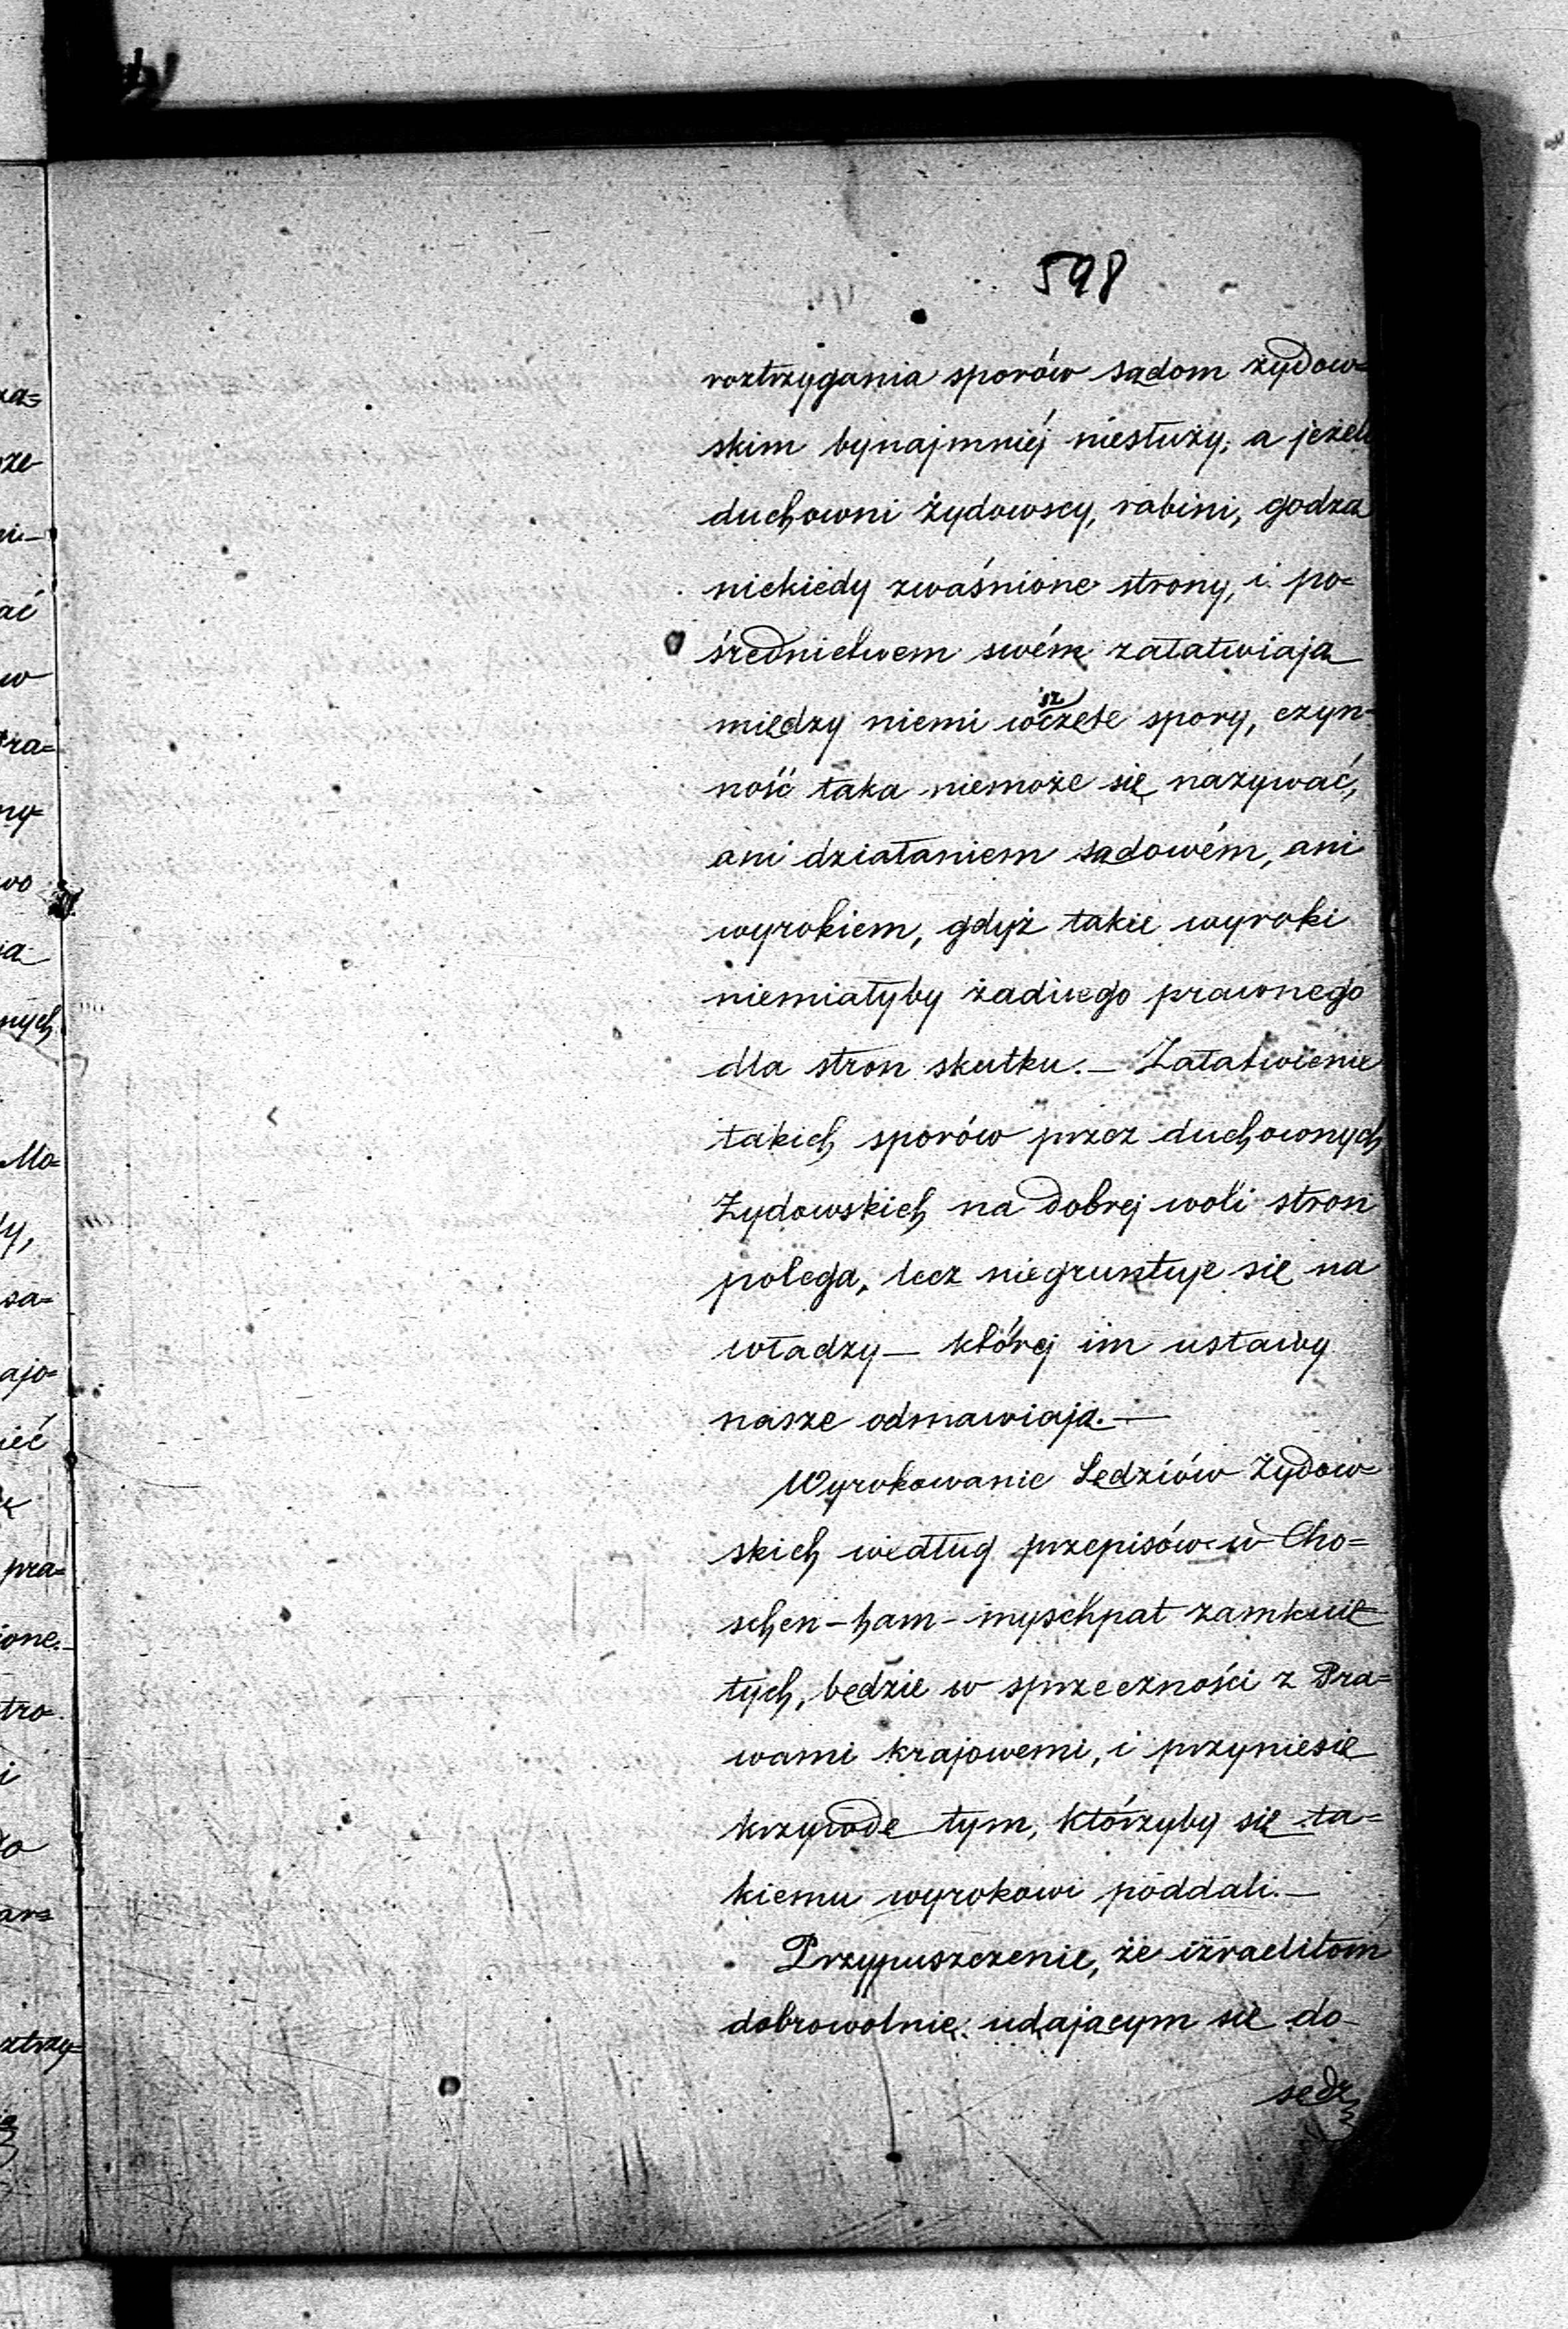 598
roztrzygania sporów sądom żydow=
skim bynajmniéj niesłuży, a jeżeli
duchowni żydowscy, rabini, godzą
niekiedy zwaśnione strony, i po=
średnictwem swém załatwiają
między niemi wszczęte spory, czyn=
ność taka niemoże się nazywać,
ani działaniem sądowém, ani
wyrokiem, gdyż takie wyroki
niemiałyby żadnego prawnego
dla stron skutku. — Załatwienie
takich sporów przez duchownych
Żydowskich na dobrej woli stron
polega, lecz niegruntuje się na
władzy — któréj im ustawy
nasze odmawiają. —
Wyrokowanie Sędziów Żydow=
skich według przepisów w Cho=
schen-ham-myschpat zamknię
tych, będzie w sprzeczności z Pra=
wami krajowemi, i przyniesie
krzywdę tym, którzyby się ta=
kiemu wyrokowi poddali. —
Przypuszczenie, że izraelitom
dobrowolnie udającym się do
sędz